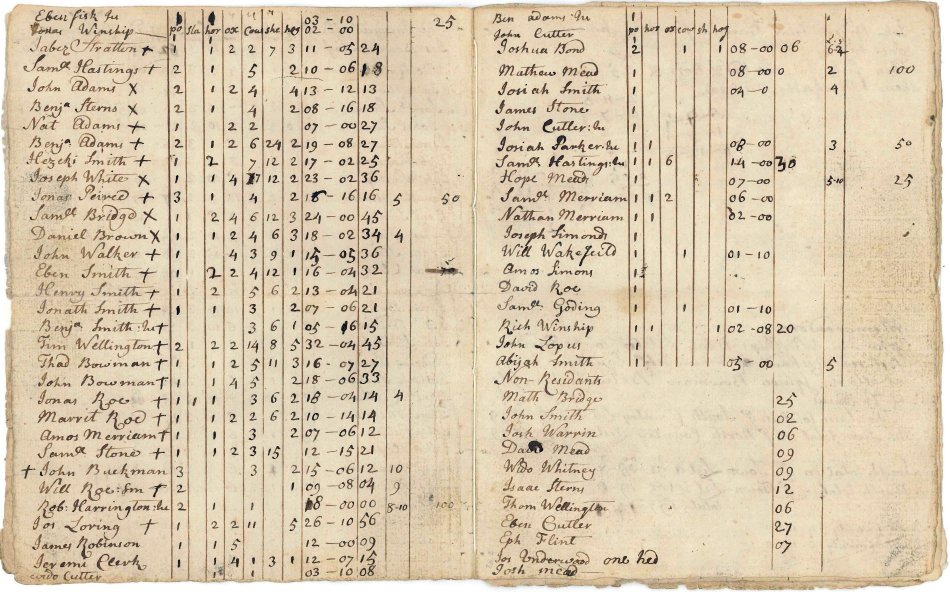 Eben fisk Ju 03 - 10 25
Jonas Winship po sla hor ox cow she hog 02 - 00
Jabez Stratton + 1 1 2 2 7 3 11 - 05 24
Saml Hastings + 2 1 5 2 10 - 06 18
John Adams X 2 1 2 4 4 13 - 12 13
Benja Sterns X 2 1 4 2 08 - 16 18
Nat Adams + 1 2 2 07 - 00 27
Benja Adams + 2 1 2 6 24 2 19 - 08 27
Hezeki Smith + 1 2 7 12 2 17 - 02 25
Joseph White X 1 1 4 17 12 2 23 - 02 36
Jonas Peirce + 3 1 4 2 18 - 16 16 5 50
Saml Bridge X 1 2 4 6 12 3 24 - 00 45
Daniel Brown X 1 1 2 4 6 3 18 - 02 34 4
John Walker + 1 4 3 9 1 15 - 05 36
Eben Smith + 1 2 2 4 12 1 16 - 04 32
Henry Smith + 1 2 5 6 2 13 - 04 21
Jonath Smith + 1 1 3 2 07 - 06 21
Benja Smith : Ju + 3 6 1 05 - 16 15
Tim Wellington + 2 2 2 14 8 5 32 - 04 45
Thad Bowman + 1 1 2 5 11 3 16 - 07 27
John Bowman + 1 1 4 5 2 18 - 06 33
Jonas Roe + 1 1 3 6 2 18 - 04 14 4
Marrit Roe + 1 1 2 2 6 2 10 - 14 14
Amos Merriam + 1 1 3 2 07 - 06 12
Saml Stone + 1 1 2 3 15 12 - 15 21
+ John Buckman 3 3 2 15 - 06 12 10
Will Roe : Sm + 2 1 09 - 08 04 9
Rob : Harrington : Ju 2 1 1 18 - 00 00 8-10 100
Jos Loring + 1 2 2 11 5 26 - 10 56
James Robinson 1 1 5 12 - 00 09
Jeremi Clerk 1 1 4 1 3 1 12 - 07 15
wido Cutter 1 1 03 - 10 08
Ben adams : Ju
John Cutler po hor ox cow sh hog
Joshua Bond 2 1 1 08 - 00 06
Mathew Mead 1 08 - 00 0 2 100
Josiah Smith 1 04 - 0 4
James Stone 1
John Cutler : Ju 1
Josiah Parker : Ju 1 1 08 - 00 3 50
Saml Hastings : Ju 1 1 6 14 - 00 30
Hope Mead 1 07 - 00 5-10 25
Saml Merriam 1 1 2 06 - 00
Nathan Merriam 1 1 02 - 00
Joseph Simonds 1
Will Wakefeild 1 1 01 - 10
Amos Simons 1
David Roe 1
Saml Goding 1 1 01 - 10
Rich Winship 1 1 1 02 - 08 20
John Lopus 1
Abijah Smith 1 05 - 00 5
Non-Residants
Math Bridge 25
John Smith 02
Josh Warrin 06
David Mead 09
Wido Whitney 09
Isaac Sterns 12
Thom Wellington 06
Eben Cutler 27
Eph Flint 07
Jos Underwood one hed
Josh mead